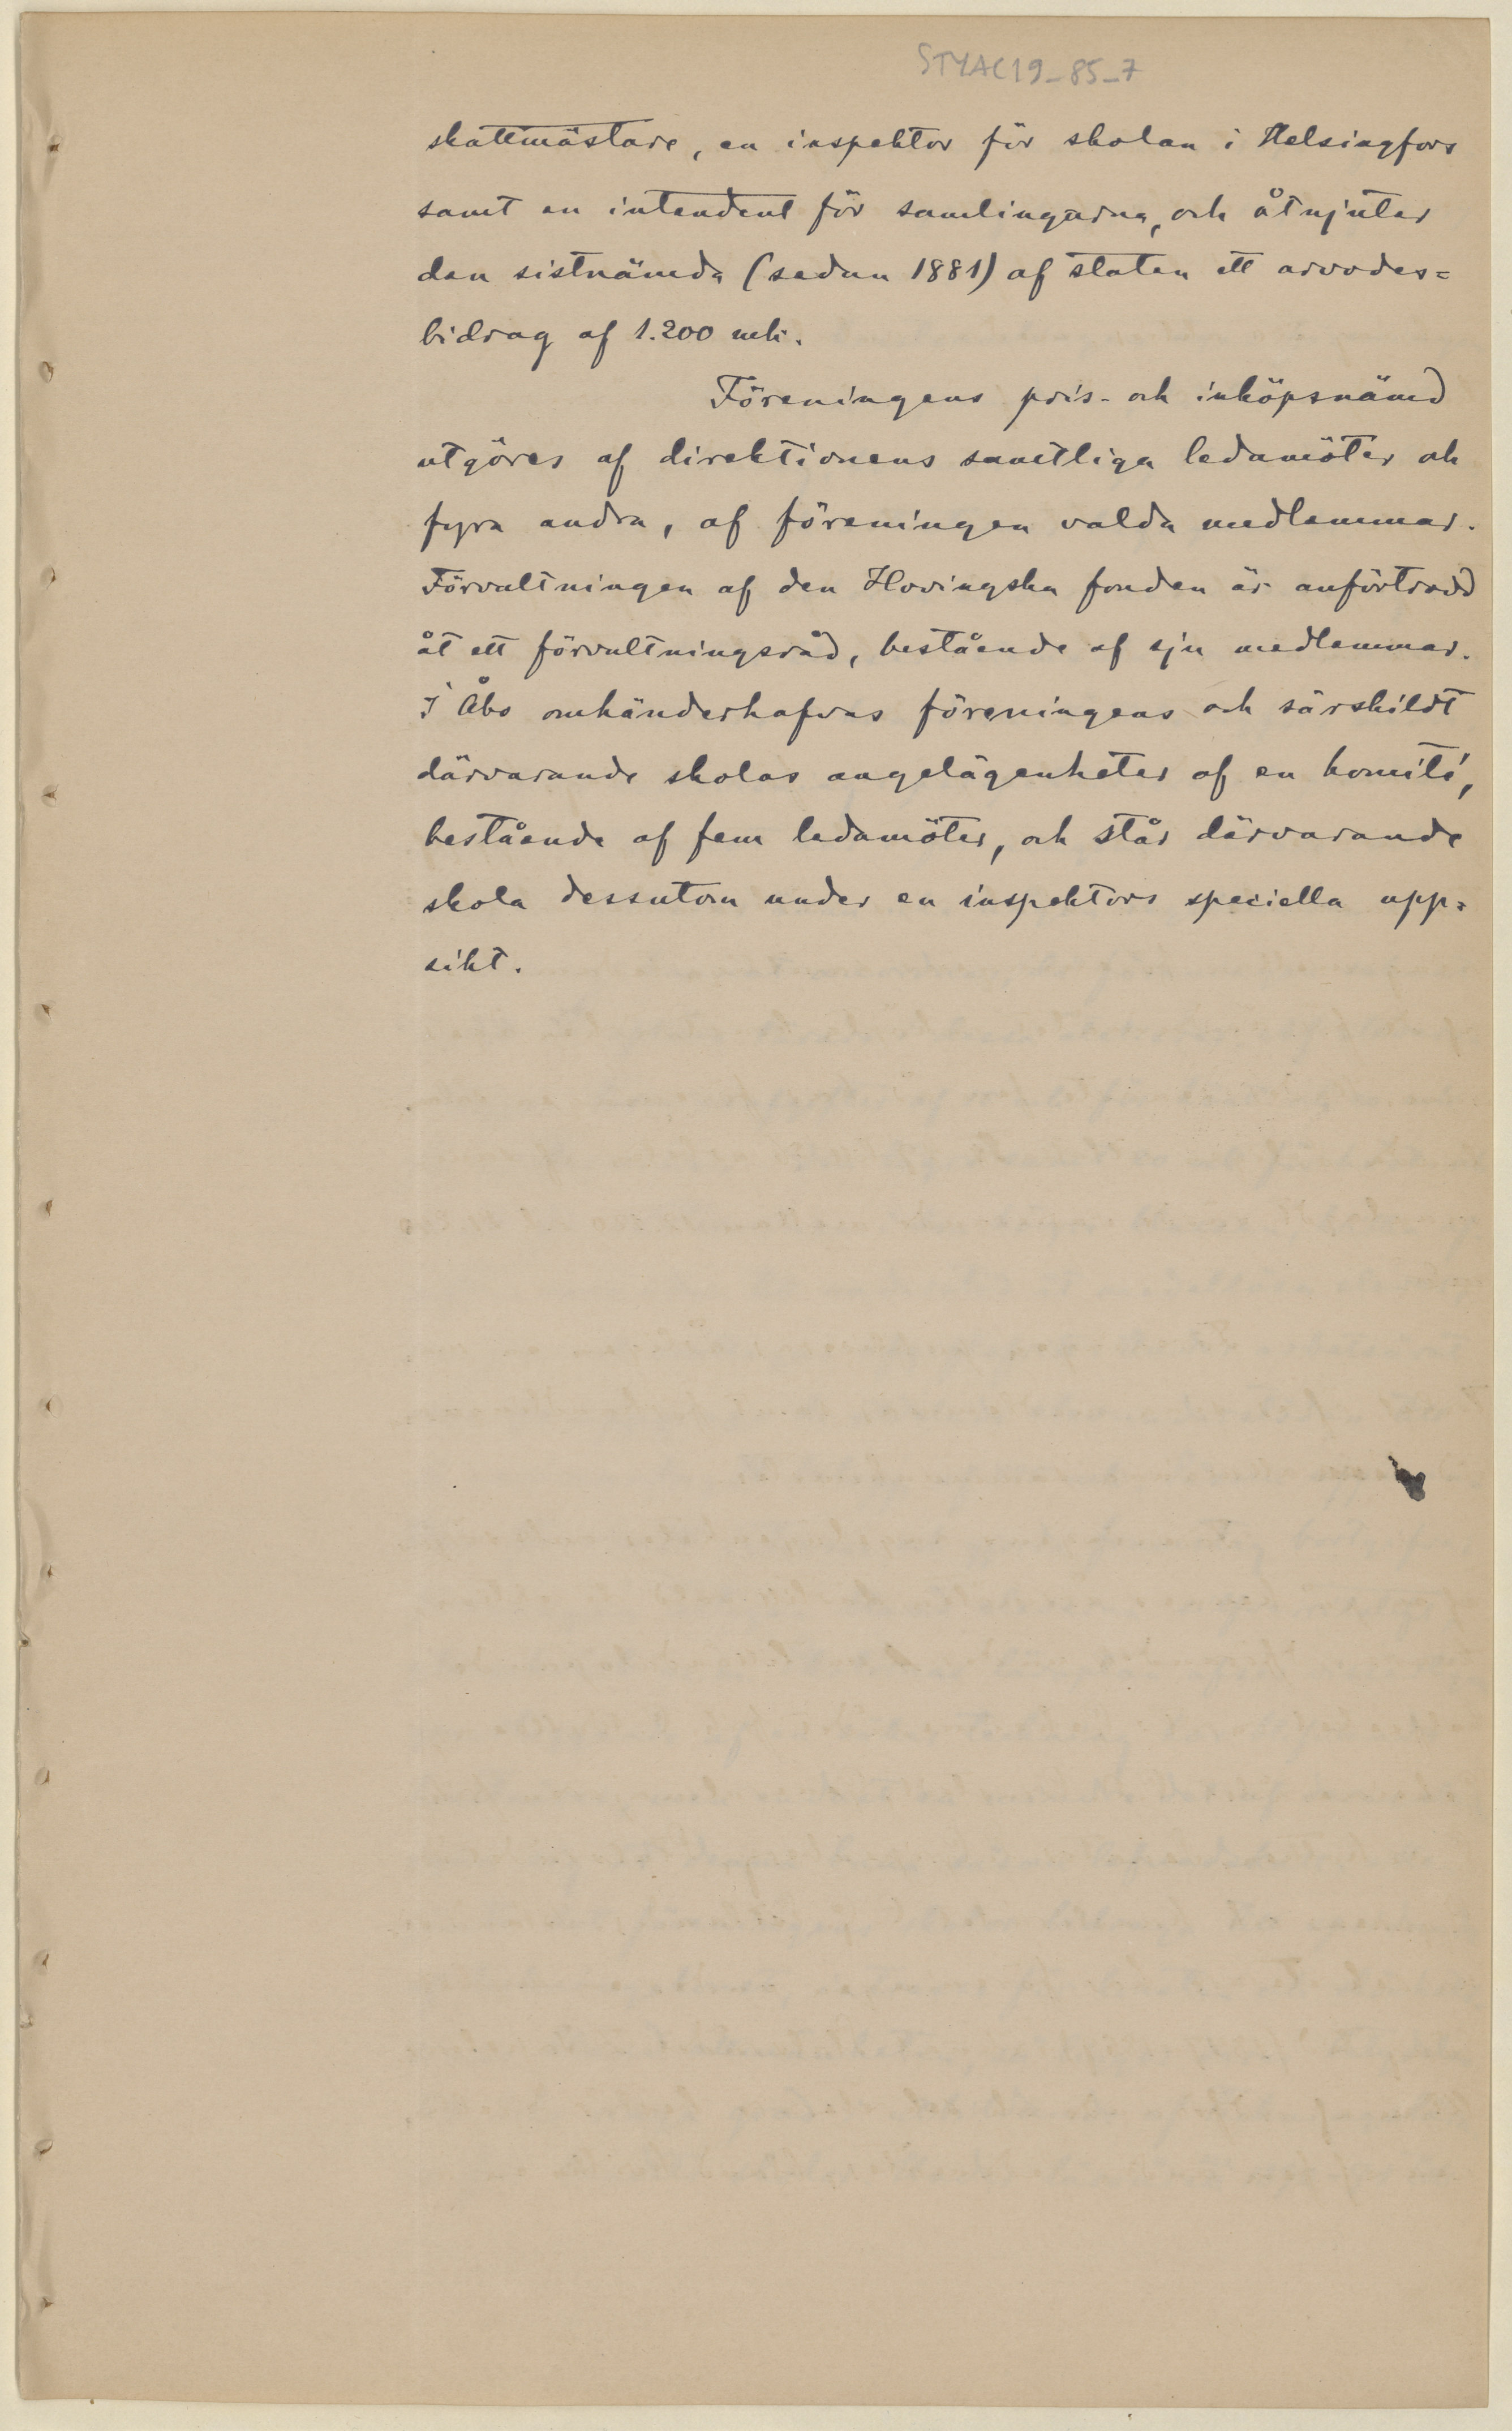 STYAC19_85_7
skattmästare, en inspektor för skolan i Helsingfors
samt en intendent för samlingarna, och åtnjuter
den sistnämda (sedan 1881) af staten ett arvodes=
bidrag af 1.200 mk.
Föreningens pris- och inköpsnämd
utgöres af direktionens samtliga ledamöter och
fyra andra, af föreningen valda medlemmar.
Förvaltningen af den Hovingska fonden är anförtrodd
åt ett förvaltningsråd, bestående af sju medlemmar.
I Åbo omhänderhafvas föreningens och särskildt
därvarande skolas angelägenheter af en komité,
bestående af fem ledamöter, och står därvarande
skola dessutom under en inspektors speciella upp=
sikt.